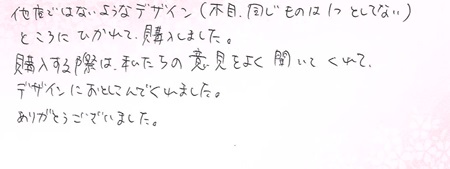 他店ではないようなデザイン(木目、同じものは1つとしてない)
ところにひかれて、購入しました。
購入する際は、私たちの意見をよく聞いてくれて、
デザインにおとしこんでくれました。
ありがとうございました。